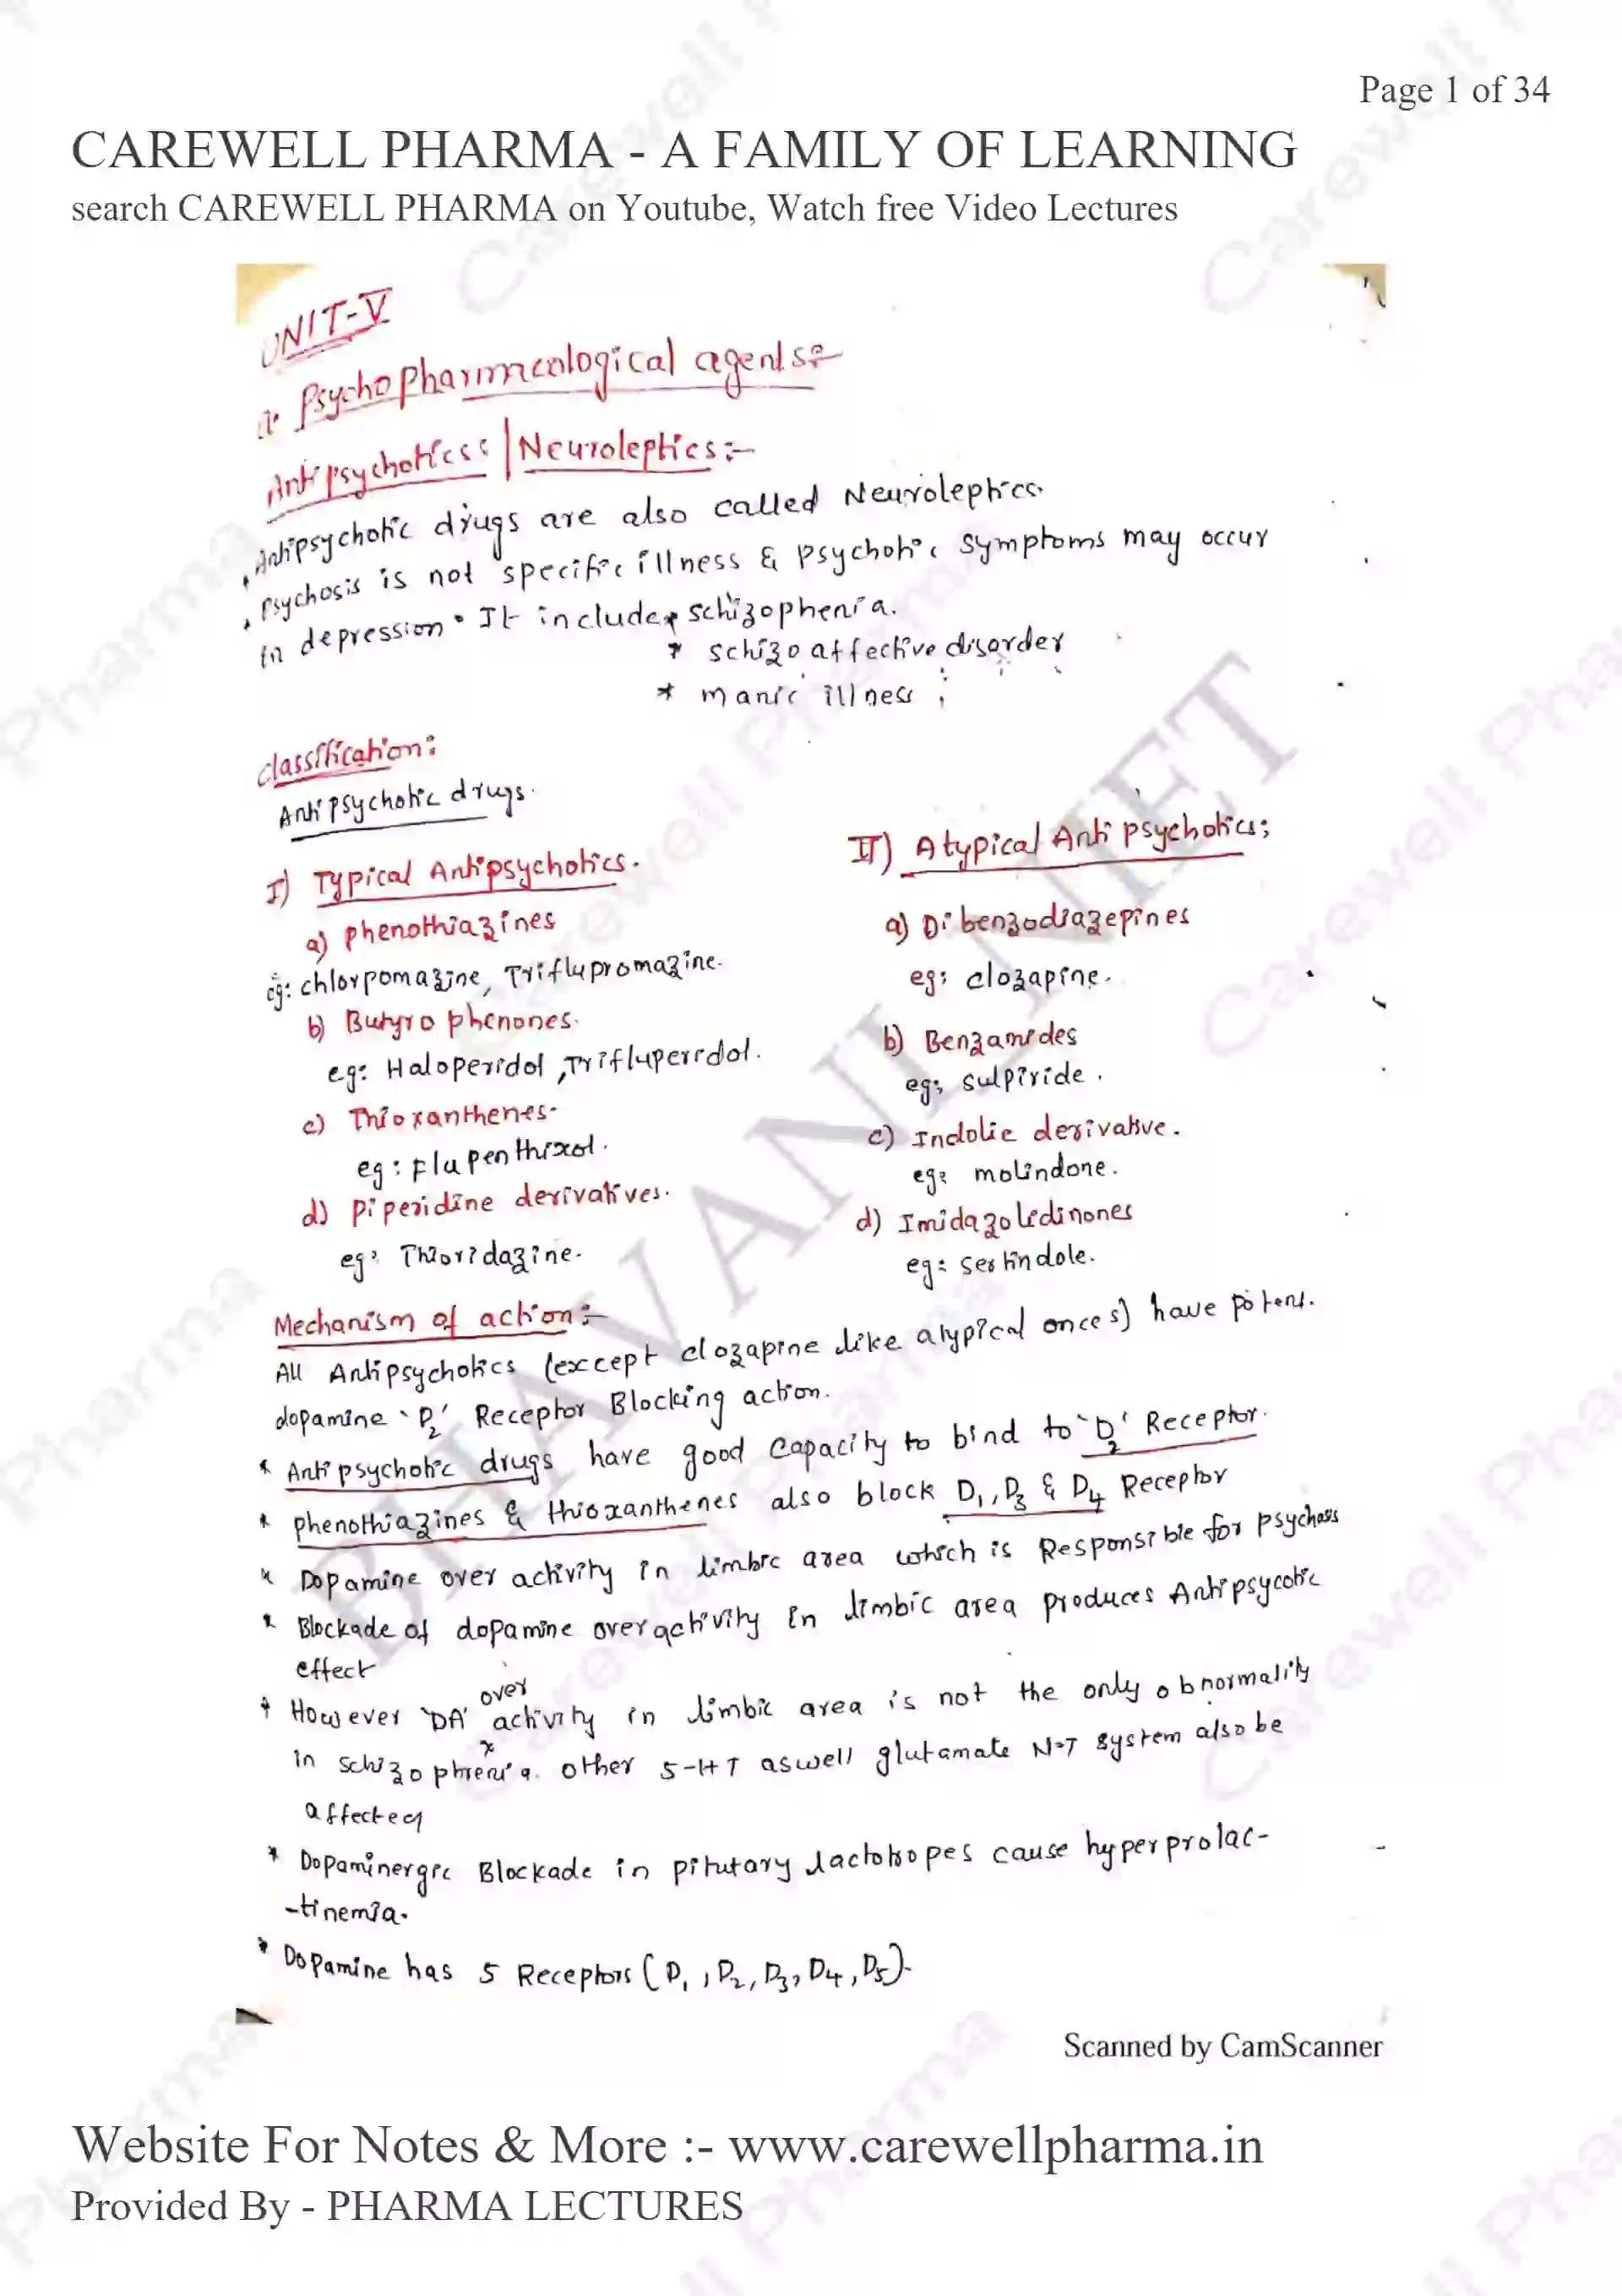 Page 1 of 34
CAREWELL PHARMA - A FAMILY OF LEARNING
search CAREWELL PHARMA on Youtube, Watch free Video Lectures
UNIT-V
Psychopharmacological agents:-
Antipsychotics: | Neuroleptics:-
Antipsychotic drugs are also called Neuroleptics.
Psychosis is not specific illness & psychotic symptoms may occur
in depression. It include * schizophenia.
* schizo affective disorder
* manic illness
classification:
Antipsychotic drugs.
I) Typical Antipsychotics.
a) phenothiazines
eg: chlorpomazine, Triflupromazine.
b) Butyro phenones.
eg: Haloperidol, Trifluperidol.
c) Thioxanthenes.
eg: Flupenthixol.
d) Piperidine derivatives.
eg: Thioridazine.
II) Atypical Anti psychotics;
a) Dibenzodiazepines
eg: clozapine.
b) Benzamides
eg; sulpiride.
c) Indolic derivative.
eg: molindone.
d) Imidazolidinones
eg: sertindole.
Mechanism of action:-
All Antipsychotics (except clozapine like atypical onces) have potent.
dopamine 'D2' Receptor Blocking action.
* Antipsychotic drugs have good capacity to bind to 'D2' Receptor.
* phenothiazines & thioxanthenes also block D1, D3 & D4 Receptor
* Dopamine over activity in limbic area which is Responsible for psychosis
* Blockade of dopamine overactivity in limbic area produces Antipsycotic
effect
* However 'DA' over activity in limbic area is not the only obnormality
in schizophrenia. other 5-HT aswell glutamate N.T system also be
affected
* Dopaminergic Blockade in pitutary lactotropes cause hyperprolac-
-tinemia.
* Dopamine has 5 Receptors (D1, D2, D3, D4, D5).
Scanned by CamScanner
Website For Notes & More :- www.carewellpharma.in
Provided By - PHARMA LECTURES
BHAVANI_NET
Carewell Pharma